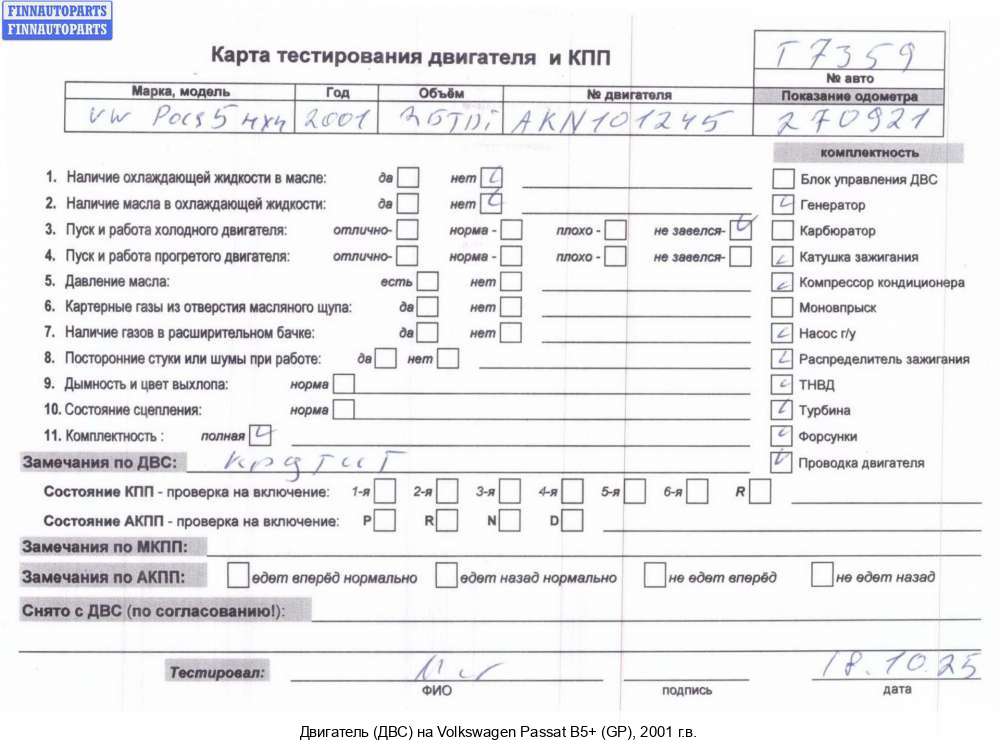 FINNAUTOPARTS
FINNAUTOPARTS
Карта тестирования двигателя и КПП
T7359
№ авто
Марка, модель Год Объём № двигателя Показание одометра
VW 2001 2.5TDi AKN101245 270921
комплектность
1. Наличие охлаждающей жидкости в масле: да нет
Блок управления ДВС
2. Наличие масла в охлаждающей жидкости: да нет
Генератор
3. Пуск и работа холодного двигателя: отлично- норма - плохо - не завелся-
Карбюратор
4. Пуск и работа прогретого двигателя: отлично- норма - плохо - не завелся-
Катушка зажигания
5. Давление масла: есть нет
Компрессор кондиционера
6. Картерные газы из отверстия масляного щупа: да нет
Моновпрыск
7. Наличие газов в расширительном бачке: да нет
Насос г/у
8. Посторонние стуки или шумы при работе: да нет
Распределитель зажигания
9. Дымность и цвет выхлопа: норма
ТНВД
10. Состояние сцепления: норма
Турбина
11. Комплектность : полная
Форсунки
Замечания по ДВС: крутит
Проводка двигателя
Состояние КПП - проверка на включение: 1-я 2-я 3-я 4-я 5-я 6-я R
Состояние АКПП - проверка на включение: P R N D
Замечания по МКПП:
Замечания по АКПП: едет вперёд нормально едет назад нормально не едет вперёд не едет назад
Снято с ДВС (по согласованию!):
Тестировал: 18.10.25
ФИО подпись дата
Двигатель (ДВС) на Volkswagen Passat B5+ (GP), 2001 г.в.